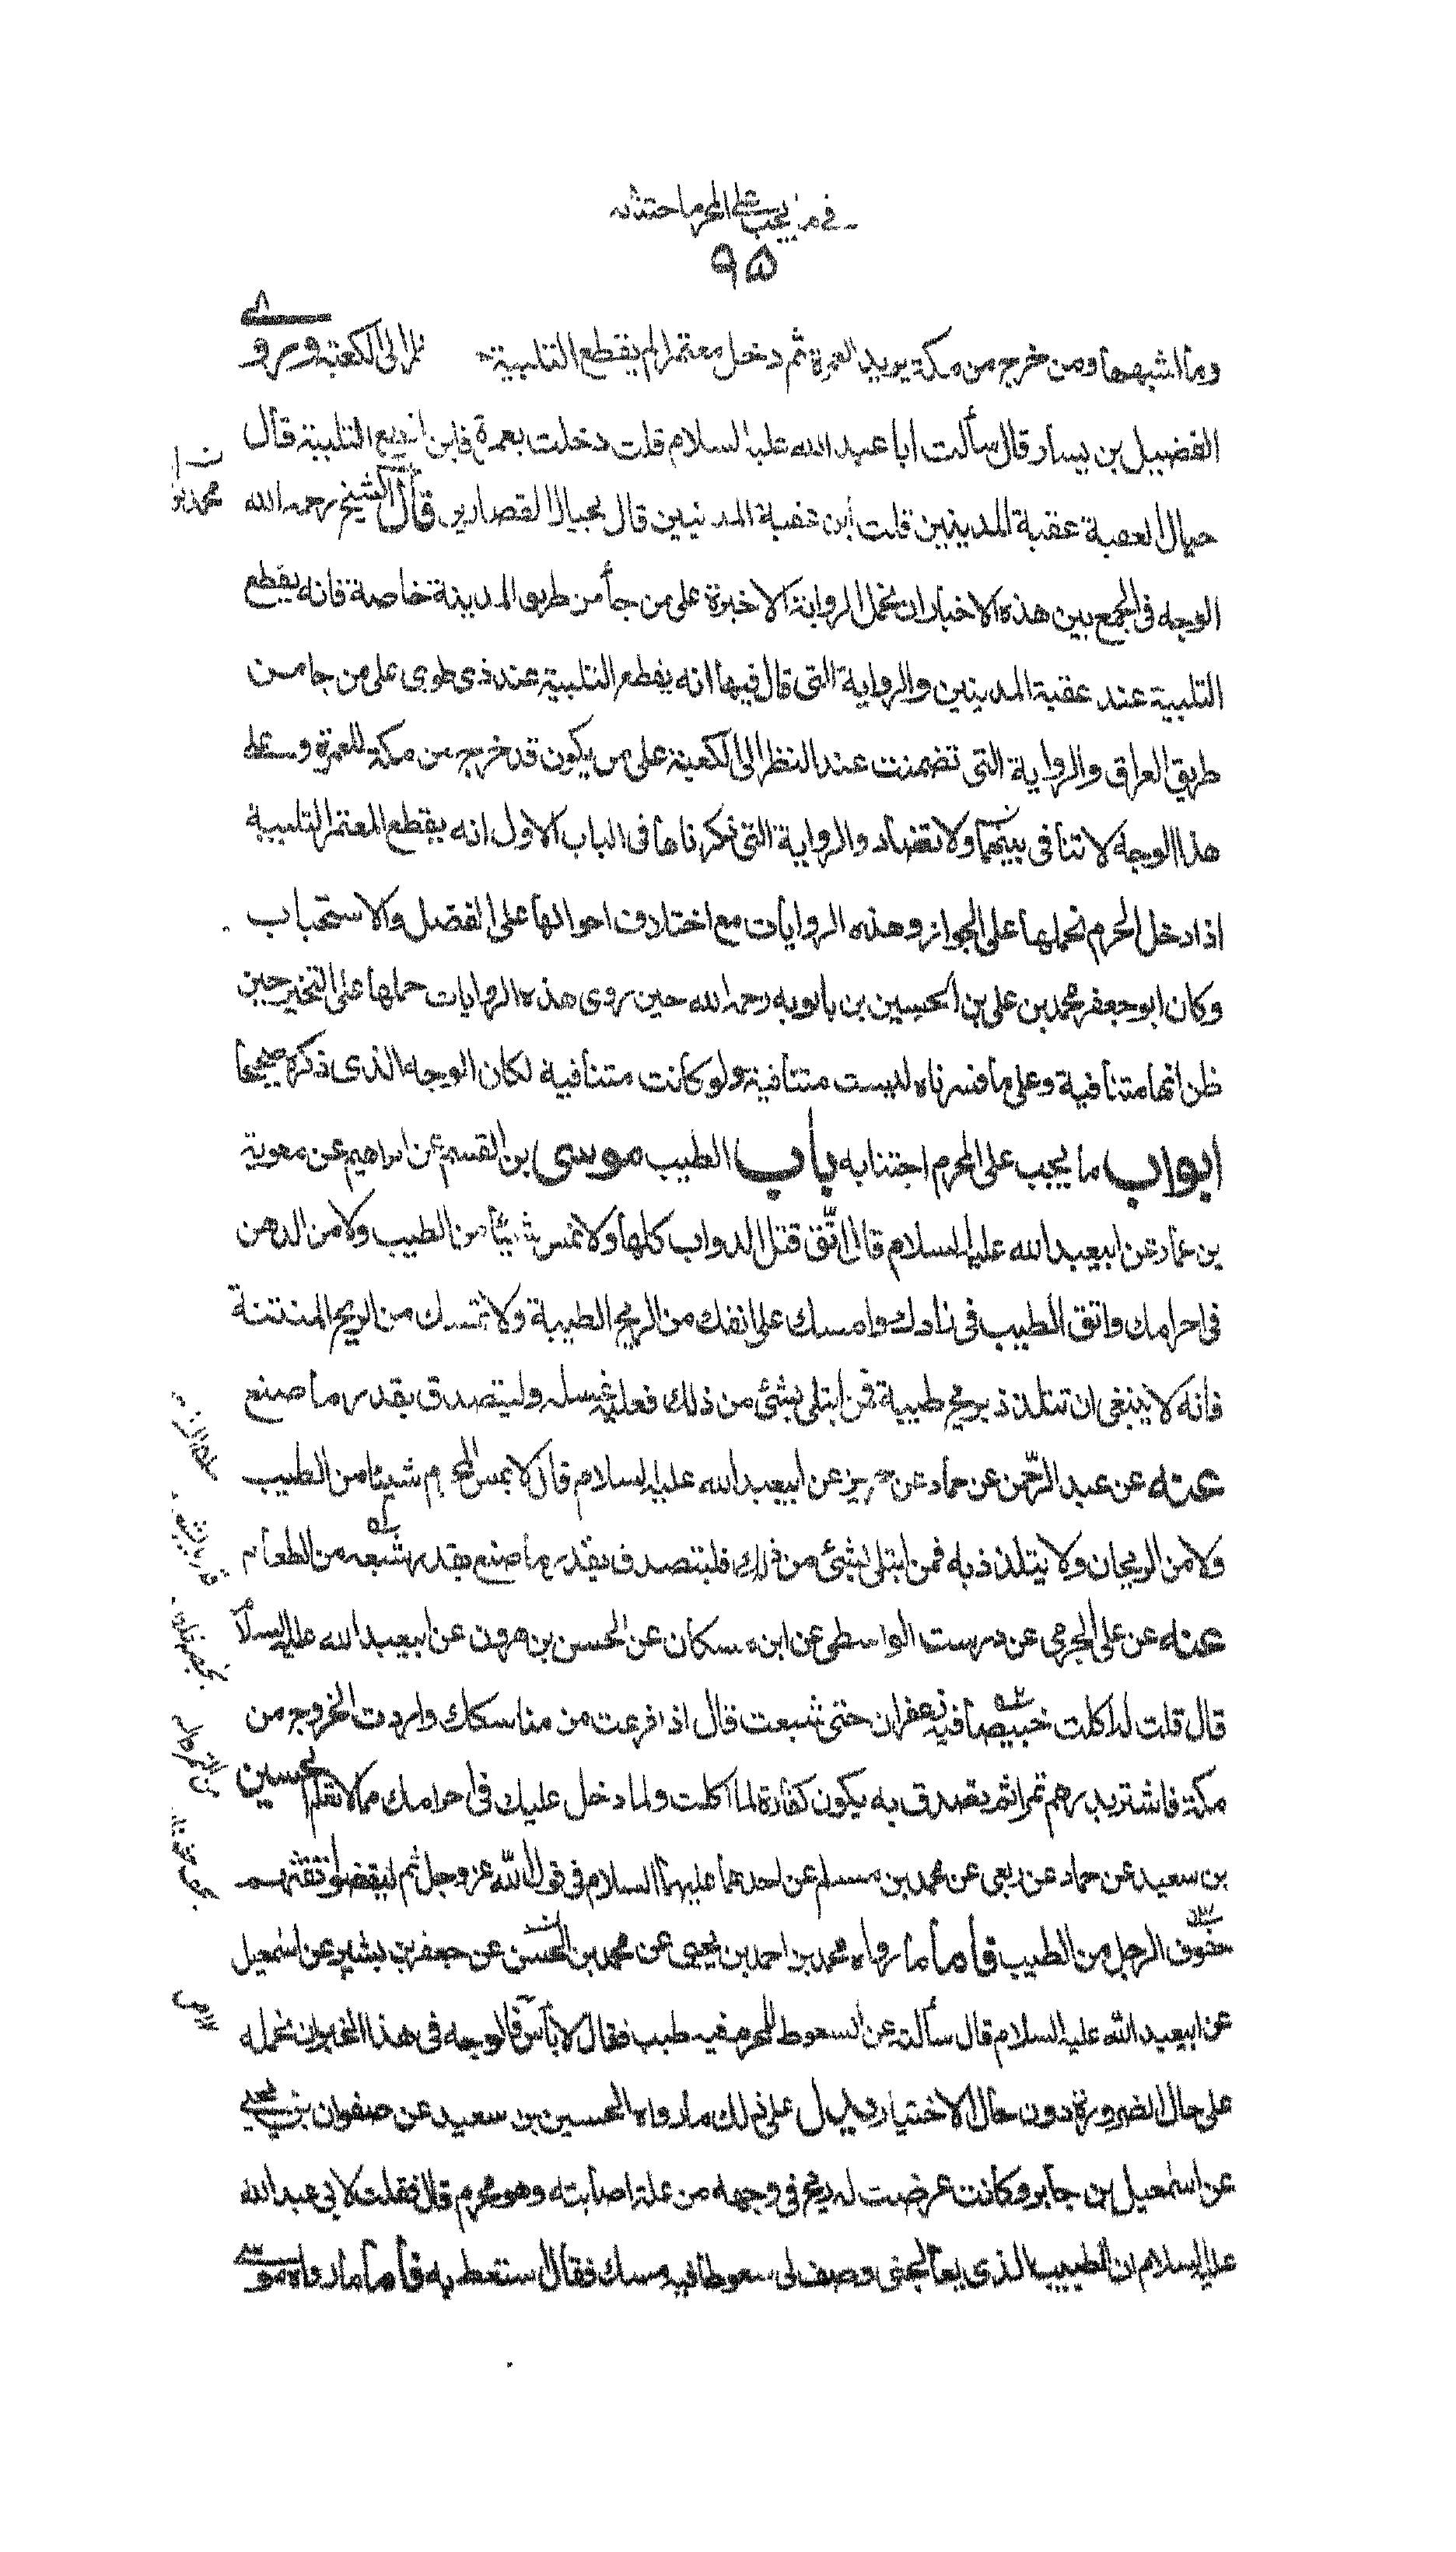 في ما يجب على المحرم اجتنابه
٩٥
وما اشبهها ومن خرج من مكة يريد العمرة ثم دخل معتمرا لم يقطع التلبية حتى ينظر الى الكعبة وروى
الفضيل بن يسار قال سألت ابا عبد الله عليه السلام قلت دخلت بعمرة فاين اقطع التلبية قال
حيال العقبة عقبة المدينين قلت أين عقبة المدنيين قال بحيال القصارين قال الشيخ رحمه الله
الوجه فى الجمع بين هذه الاخبار ان نحمل الرواية الاخيرة على من جأ من طريق المدينة خاصة فانه يقطع
التلبية عند عقبة المدينين والرواية التى قال فيها انه يقطع التلبية عند ذى طوى على من جا من
طريق العراق والرواية التى تضمنت عند النظر الى الكعبة على من يكون قد خرج من مكة للعمرة وعلى
هذا الوجه لا تنافى بينهما ولا تضاد والرواية التى ذكرناها فى الباب الاول انه يقطع المعتمر التلبية
اذا دخل الحرم نحملها على الجواز وهذه الروايات مع اختلاف احوالها على الفضل والاستحباب
وكان ابو جعفر محمد بن على بن الحسين بن بابويه رحمه الله حين روى هذه الروايات حملها على التخيير حين
ظن انها متنافية وعلى ما فسرناه ليست متنافية ولو كانت متنافية لكان الوجه الذى ذكره صحيحا
ابواب ما يجب على المحرم اجتنابه باب الطيب موسى بن القسم عن ابراهيم عن معوية
بن عمار عن ابيعبد الله عليه السلام قال اتّق قتل الدواب كلها ولا تمس شيئا من الطيب ولا من الدهن
فى احرامك واتق الطيب فى زادك وامسك على انفك من الريح الطيبة ولا تمسك من الريح المنتنة
فانه لا ينبغى ان تتلذذ بريح طيبة فمن ابتلى بشئ من ذلك فعليه غسله وليتصدق بقدر ما صنع
عنه عن عبد الرّحمن عن حماد عن حريز عن ابيعبد الله عليه السلام قال لا يمس المحرم شيئا من الطيب
ولا من الريحان ولا يتلذذ به فمن ابتلى بشئ من ذلك فليتصدق بقدر ما صنع بقدر شبعه من الطعام
عنه عن على الجرمى عن درست الواسطى عن ابن مسكان عن الحسن بن هرون عن ابيعبد الله عليه السلام
قال قلت له اكلت خبيصا فيه زعفران حتى شبعت قال اذا فرغت من مناسكك واردت الخروج من
مكة فاشتر بدرهم تمرا ثم تصدق به يكون كفارة لما اكلت ولما دخل عليك فى احرامك مما لا تعلم الحسين
بن سعيد عن حماد عن ربعى عن محمد بن مسلم عن احدهما عليهما السلام فى قول اللّه عز وجل ثم ليقضوا تفثهم
حفوف الرجل من الطيب فأما ما رواه محمد بن احمد بن يحيى عن محمد بن الحسن عن جعفر بن بشير عن اسمعيل
عن ابيعبد الله عليه السلام قال سألته عن السعوط للمحرم فيه طيب فقال لا بأس فالوجه فى هذا الخبر ان نحمله
على حال الضرورة دون حال الاختيار ويدل على ذلك ما رواه الحسين بن سعيد عن صفوان بن يحيى
عن اسمعيل بن جابر وكانت عرضت له ريح فى وجهه من علة اصابته وهو محرم قال فقلت لابى عبد الله
عليه السلام ان الطبيب الذى يعالجنى وصف لى سعوطا فيه مسك فقال استعط به فأما ما رواه موسى